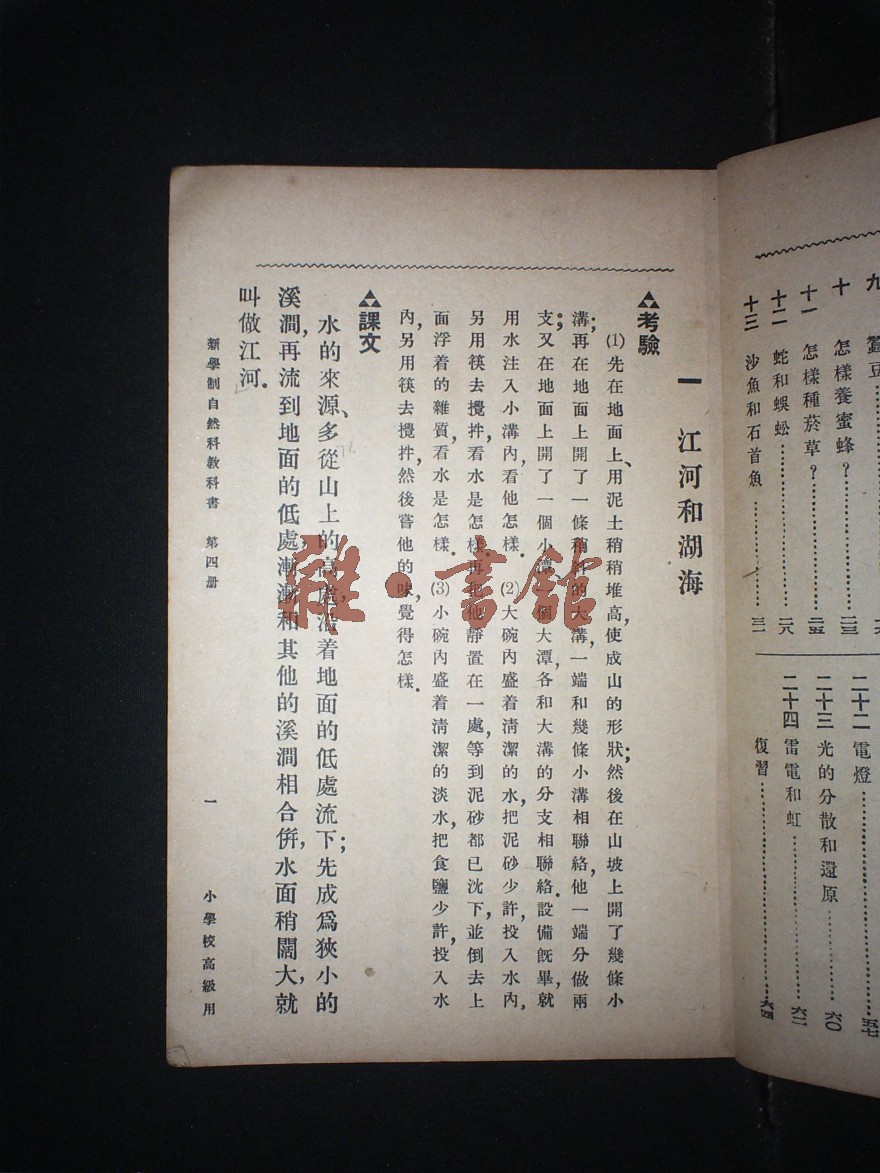 九 蠶豆
十 怎樣養蜜蜂？……二三
十一 怎樣種菸草？……二五
十二 蛇和蜈蚣……二八
十三 沙魚和石首魚……三一
二十二 電燈……五七
二十三 光的分散和還原……六〇
二十四 雷電和虹……六二
復習……六四
一 江河和湖海
考驗
(1)先在地面上、用泥土稍稍堆高，使成山的形狀；然後在山坡上開了幾條小
溝；再在地面上開了一條稍斜的大溝，一端和幾條小溝相聯絡，他一端分做兩
支；又在地面上開了一個小潭，一個大潭，各和大溝的分支相聯絡．設備旣畢，就
用水注入小溝內，看他怎樣．(2)大碗內盛着淸潔的水，把泥砂少許，投入水內，
另用筷去攪拌，看水是怎樣，再把他靜置在一處，等到泥砂都已沈下，並倒去上
面浮着的雜質，看水是怎樣．(3)小碗內盛着淸潔的淡水，把食鹽少許，投入水
內，另用筷去攪拌，然後嘗他的味，覺得怎樣．
課文
水的來源、多從山上的高處、沿着地面的低處流下；先成爲狹小的
溪澗，再流到地面的低處，漸漸和其他的溪澗相合倂，水面稍闊大，就
叫做江河．
新學制自然科敎科書 第四册 一 小學校高級用
雜·書館